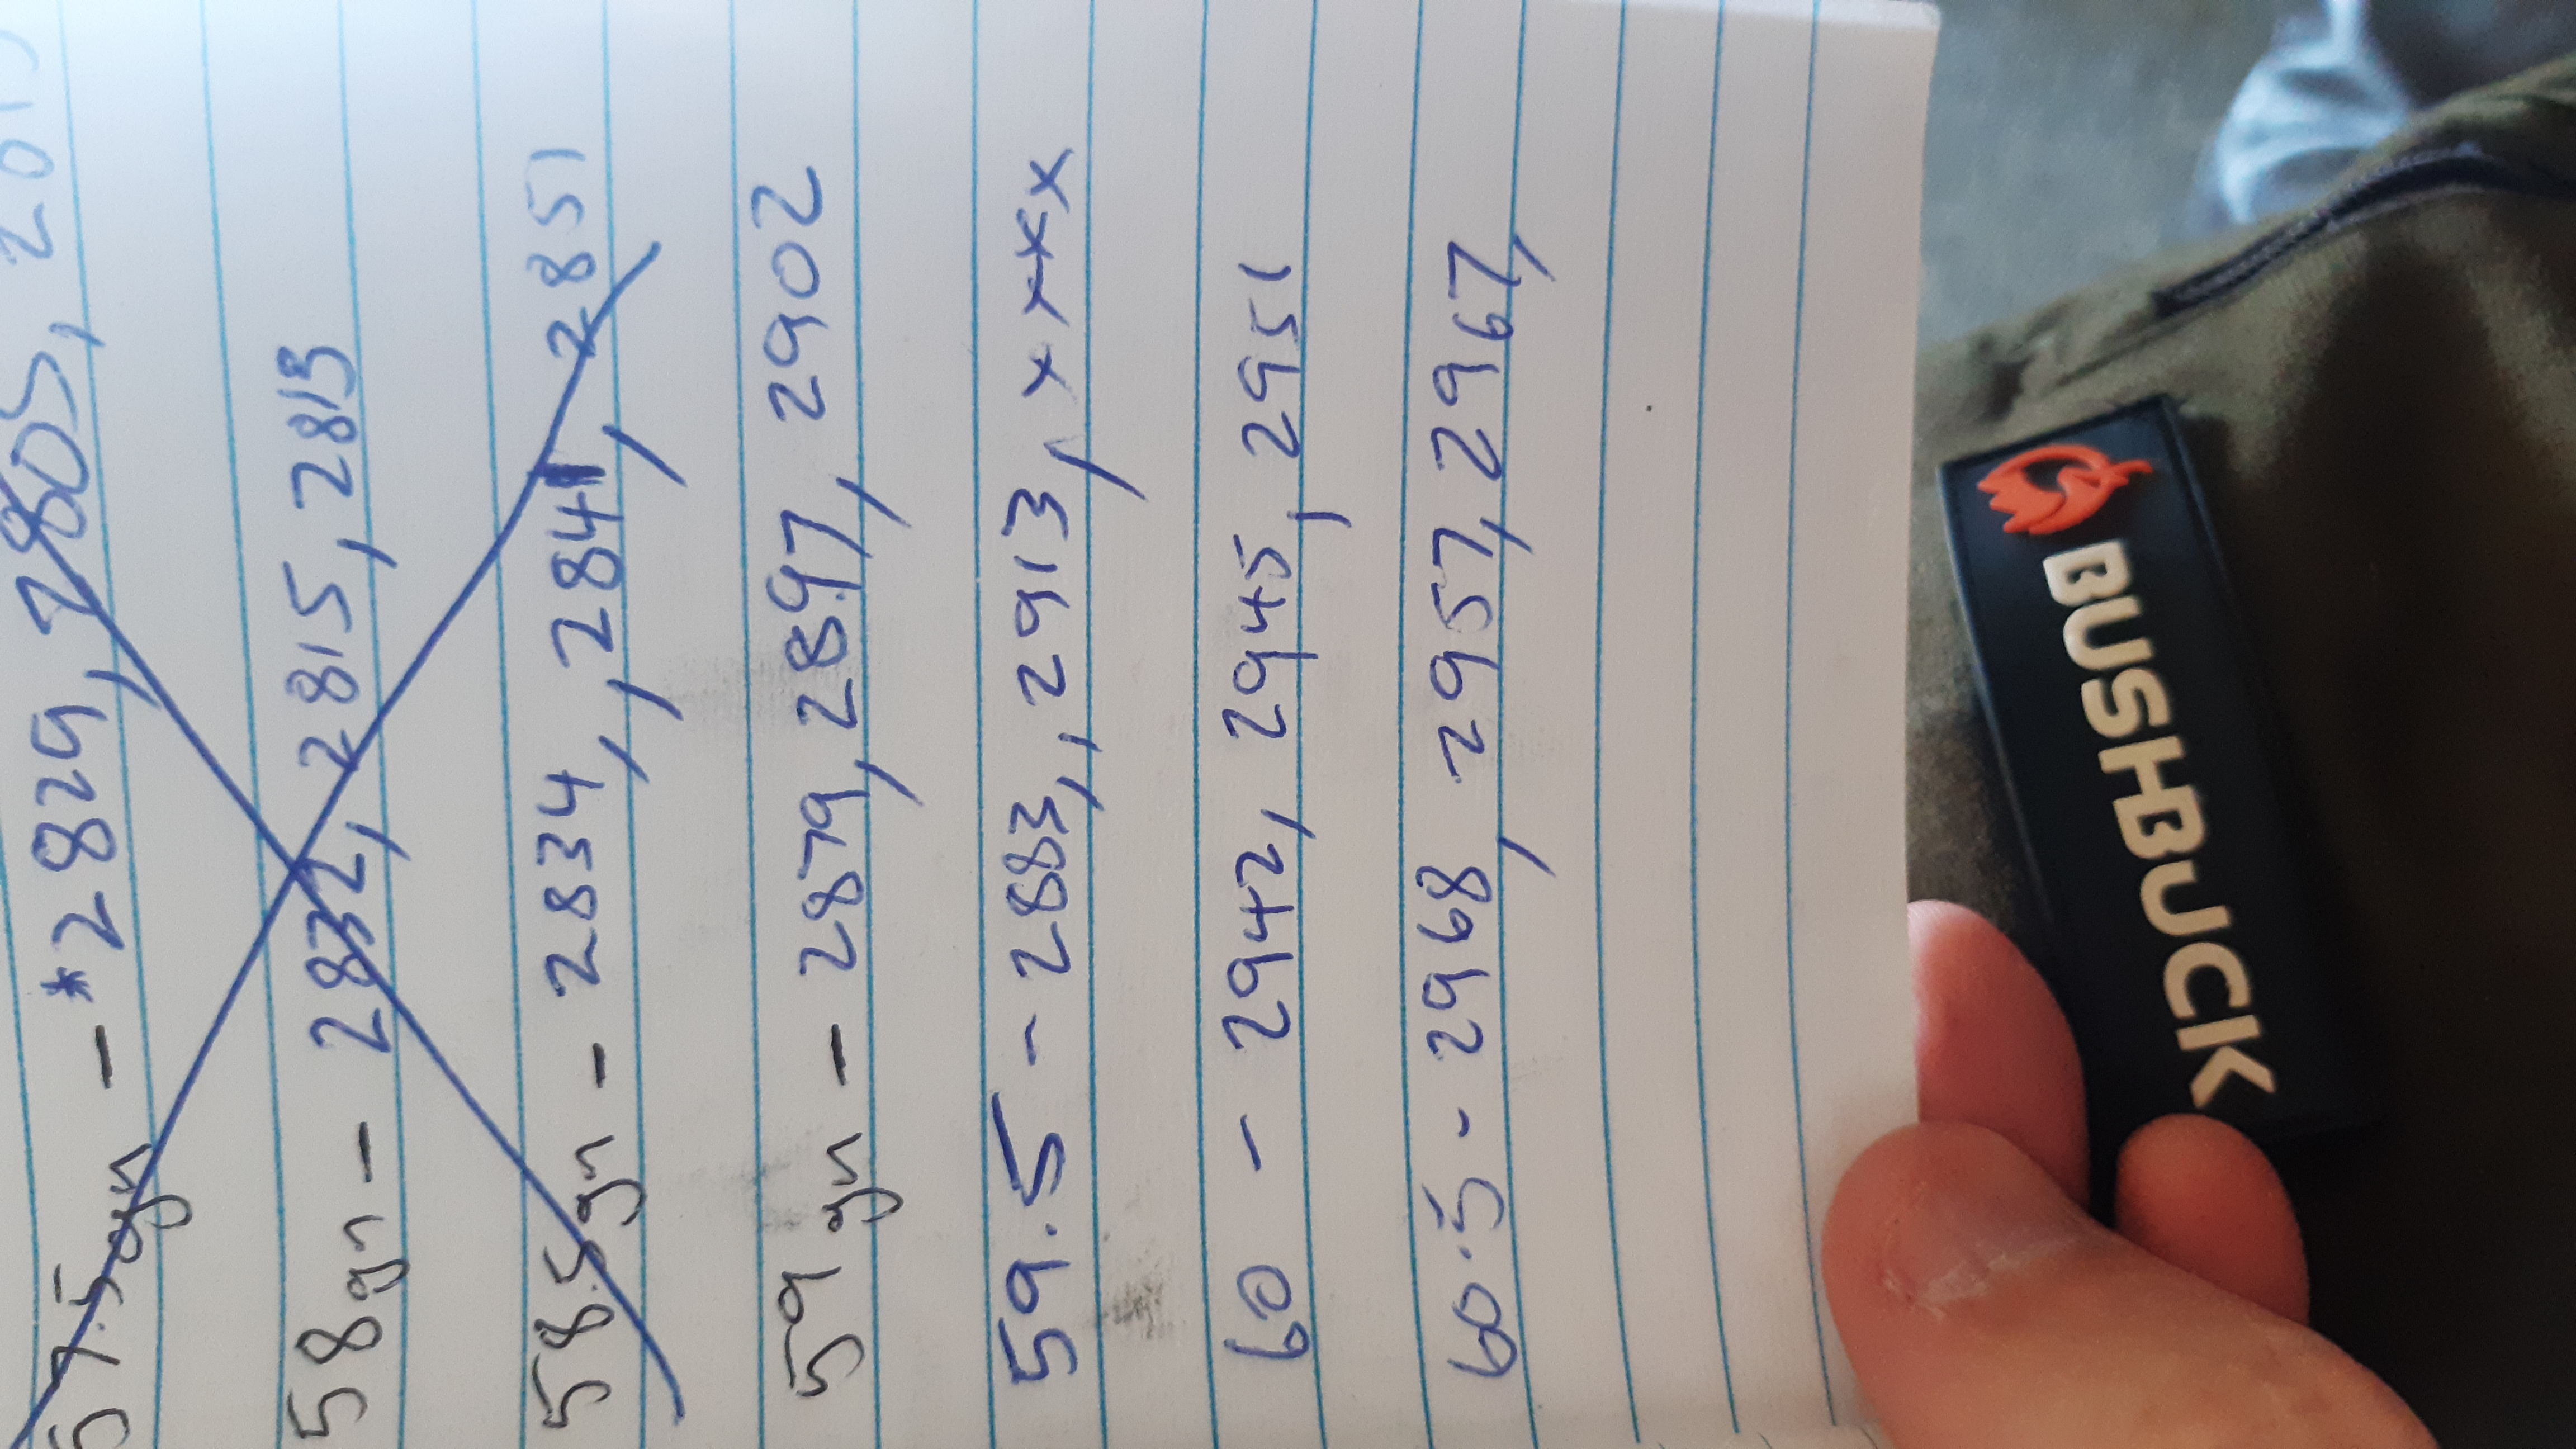 57.5gn - *2829, 2805,
58gn - 2832, 2815, 2813
58.5gn - 2834,, 2841, 2851
59gn - 2879, 2897, 2902
59.5 - 2883,, 2913, x x x x
60 - 2942, 2945, 2951
60.5 - 2968, 2957, 2967,
BUSHBUCK